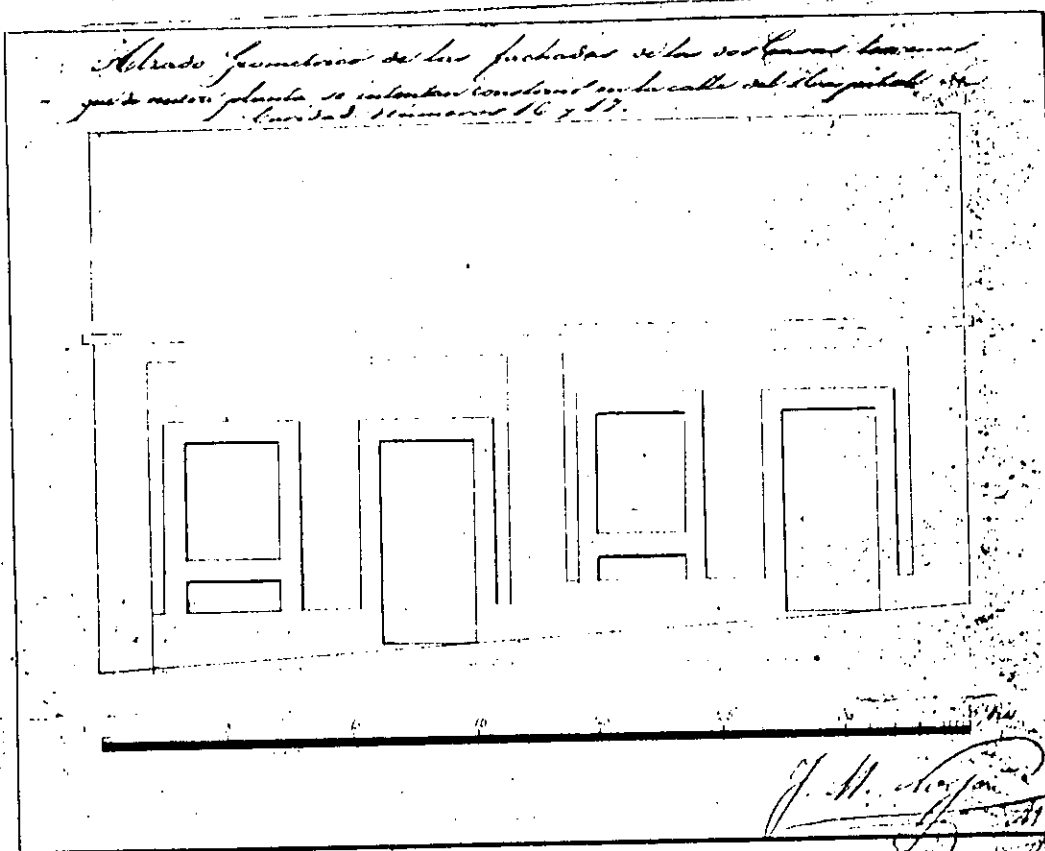 Alzado Geometrico de las fachadas de las dos Casas terrenas
que de nueva planta se intentan construir en la calle del Hospital de
Caridad Números 16 y 17.
5 10
J. M.